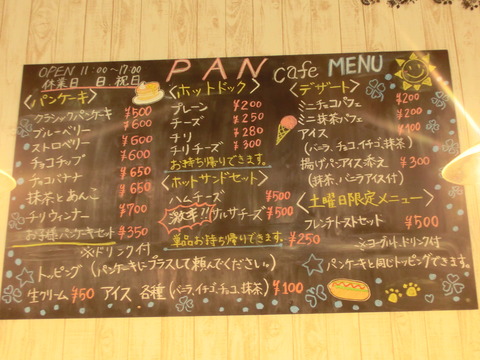 OPEN 11:00~17:00
休業日 日、祝日。
PAN cafe MENU
〈パンケーキ〉
クラシックパンケーキ ¥500
ブルーベリー ¥600
ストロベリー ¥600
チョコチップ ¥600
チョコバナナ ¥650
抹茶とあんこ ¥650
チリウィンナー ¥700
お子様パンケーキセット ¥350
※ドリンク付
〈ホットドック〉
プレーン ¥200
チーズ ¥250
チリ ¥280
チリチーズ ¥300
お持ち帰りできます。
〈ホットサンドセット〉
ハムチーズ ¥500
激辛!!サルサチーズ ¥500
単品お持ち帰りできます。 ¥250
〈デザート〉
ミニチョコパフェ ¥200
ミニ抹茶パフェ ¥200
アイス ¥100
(バニラ、チョコ、イチゴ、抹茶)
揚げパンアイス添え ¥300
(抹茶、バニラアイス付)
〈土曜日限定メニュー〉
フレンチトーストセット ¥500
ミニヨーグルト、ドリンク付
パンケーキと同じトッピングできます。
トッピング(パンケーキにプラスして頼んでください。)
生クリーム ¥50 アイス 各種(バニラ、イチゴ、チョコ、抹茶) ¥100